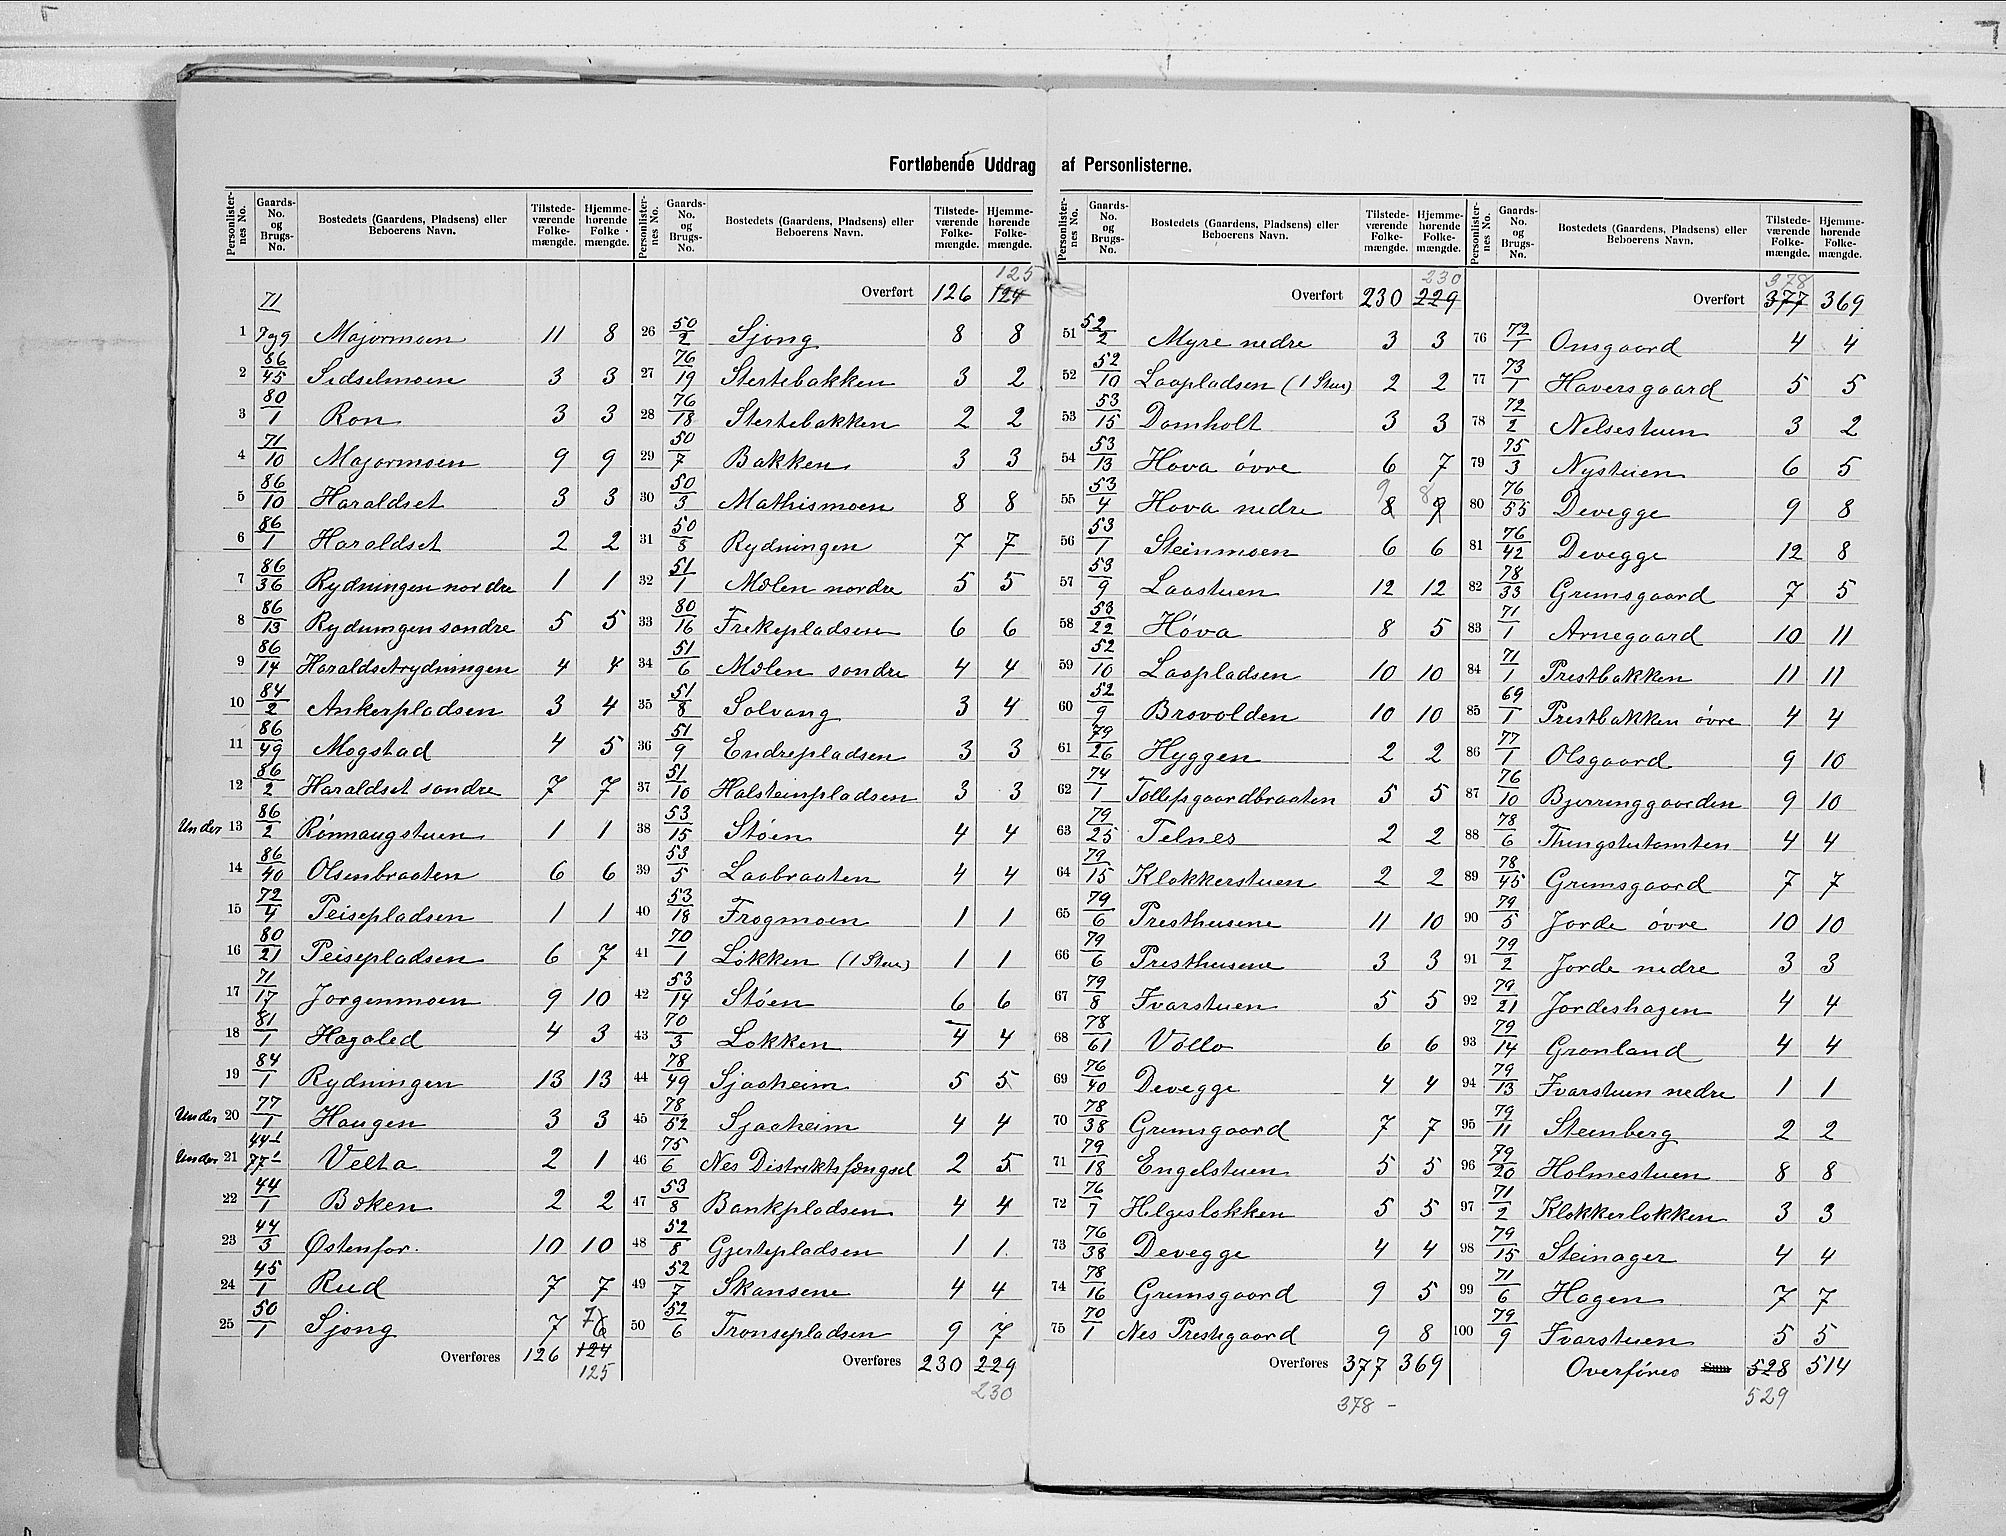 Fortløbende Uddrag af Personlisterne.
Personlisternes No. | Gaards-No. og Brugs-No. | Bostedets (Gaardens, Pladsens) eller Beboerens Navn. | Tilstedeværende Folkemængde. | Hjemmehørende Folkemængde.
71
1 7 og 9 Majormoen 11 8
2 86/45 Sidselmoen 3 3
3 80/1 Ron 3 3
4 71/10 Majormoen 9 9
5 86/10 Haraldset 3 3
6 86/1 Haraldset 2 2
7 86/36 Rydningen nordre 1 1
8 86/13 Rydningen søndre 5 5
9 86/14 Haraldsetrydningen 4 4
10 84/2 Ankerpladsen 3 4
11 86/49 Mogstad 4 5
12 86/2 Haraldset søndre 7 7
Under 13 86/2 Rønnaugstuen 1 1
14 86/40 Olsenbraaten 6 6
15 72/4 Peisepladsen 1 1
16 80/21 Peisepladsen 6 7
17 71/17 Jørgenmoen 9 10
18 81/1 Hagaled 4 3
19 84/1 Rydningen 13 13
Under 20 77/1 Haugen 3 3
Under 21 44/1 77/1 Velta 2 1
22 44/1 Bæken 2 2
23 44/3 Østenfor. 10 10
24 45/1 Rud 7 7
25 50/1 Sjong 7 7 6
Overføres 126 124
125
Personlisternes No. | Gaards-No. og Brugs-No. | Bostedets (Gaardens, Pladsens) eller Beboerens Navn. | Tilstedeværende Folkemængde. | Hjemmehørende Folkemængde.
125
Overført 126 124
26 50/2 Sjong 8 8
27 76/19 Stertebakken 3 2
28 76/18 Stertebakken 2 2
29 50/7 Bakken 3 3
30 50/3 Mathismoen 8 8
31 50/8 Rydningen 7 7
32 51/1 Mælen nordre 5 5
33 80/16 Frekepladsen 6 6
34 51/6 Mælen søndre 4 4
35 51/8 Solvang 3 4
36 51/9 Endrepladsen 3 3
37 51/10 Halsteinpladsen 3 3
38 53/15 Støen 4 4
39 53/5 Laabraaten 4 4
40 53/18 Frogmoen 1 1
41 70/1 Løkken (1 Stue) 1 1
42 53/14 Støen 6 6
43 70/3 Løkken 4 4
44 78/49 Sjaaheim 5 5
45 78/52 Sjaaheim 4 4
46 75/6 Nes Distriktsfængsel 2 5
47 53/8 Bankpladsen 4 4
48 52/8 Gjertepladsen 1 1
49 52/7 Skansene 4 4
50 52/6 Tronsepladsen 9 7
Overføres 230 229
230
Personlisternes No. | Gaards-No. og Brugs-No. | Bostedets (Gaardens, Pladsens) eller Beboerens Navn. | Tilstedeværende Folkemængde. | Hjemmehørende Folkemængde.
230
Overført 230 229
51 52/2 Myre nedre 3 3
52 52/10 Laapladsen (1 Stue) 2 2
53 53/15 Domholt 3 3
54 53/13 Hova øvre 6 7
55 53/4 Hova nedre 9 8 8 9
56 53/1 Steinmoen 6 6
57 53/9 Laastuen 12 12
58 53/22 Høva 8 5
59 52/10 Laapladsen 10 10
60 52/9 Brovolden 10 10
61 79/26 Hyggen 2 2
62 74/1 Tollefsgaardbraaten 5 5
63 79/25 Telnes 2 2
64 79/15 Klokkerstuen 2 2
65 79/6 Presthusene 11 10
66 79/6 Presthusene 3 3
67 79/8 Ivarstuen 5 5
68 78/61 Vøllo 6 6
69 76/40 Devegge 4 4
70 78/38 Grimsgaard 7 7
71 79/18 Engelstuen 5 5
72 76/7 Helgesløkken 5 5
73 76/38 Devegge 4 4
74 78/16 Grimsgaard 9 5
75 70/1 Nes Prestegaard 9 8
Overføres 377 369
378 -
Personlisternes No. | Gaards-No. og Brugs-No. | Bostedets (Gaardens, Pladsens) eller Beboerens Navn. | Tilstedeværende Folkemængde. | Hjemmehørende Folkemængde.
378
Overført 377 369
76 72/1 Onsgaard 4 4
77 73/1 Haversgaard 5 5
78 72/2 Nelsestuen 3 2
79 75/3 Nystuen 6 5
80 76/55 Devegge 9 8
81 76/42 Devegge 12 8
82 78/33 Grimsgaard 7 5
83 71/1 Arnegaard 10 11
84 71/1 Prestbakken 11 11
85 69/1 Prestbakken øvre 4 4
86 77/1 Olsgaard 9 10
87 76/10 Bjerringgaarden 9 10
88 78/6 Thingstutomten 4 4
89 78/45 Grimsgaard 7 7
90 79/5 Jorde øvre 10 10
91 79/2 Jorde nedre 3 3
92 79/21 Jordeshagen 4 4
93 79/14 Grønland 4 4
94 79/13 Ivarstuen nedre 1 1
95 79/11 Steinberg 2 2
96 79/20 Holmestuen 8 8
97 71/2 Klokkerløkken 3 3
98 79/15 Steinager 4 4
99 71/6 Hagen 7 7
100 79/9 Ivarstuen 5 5
Overføres Sum 528 514
529